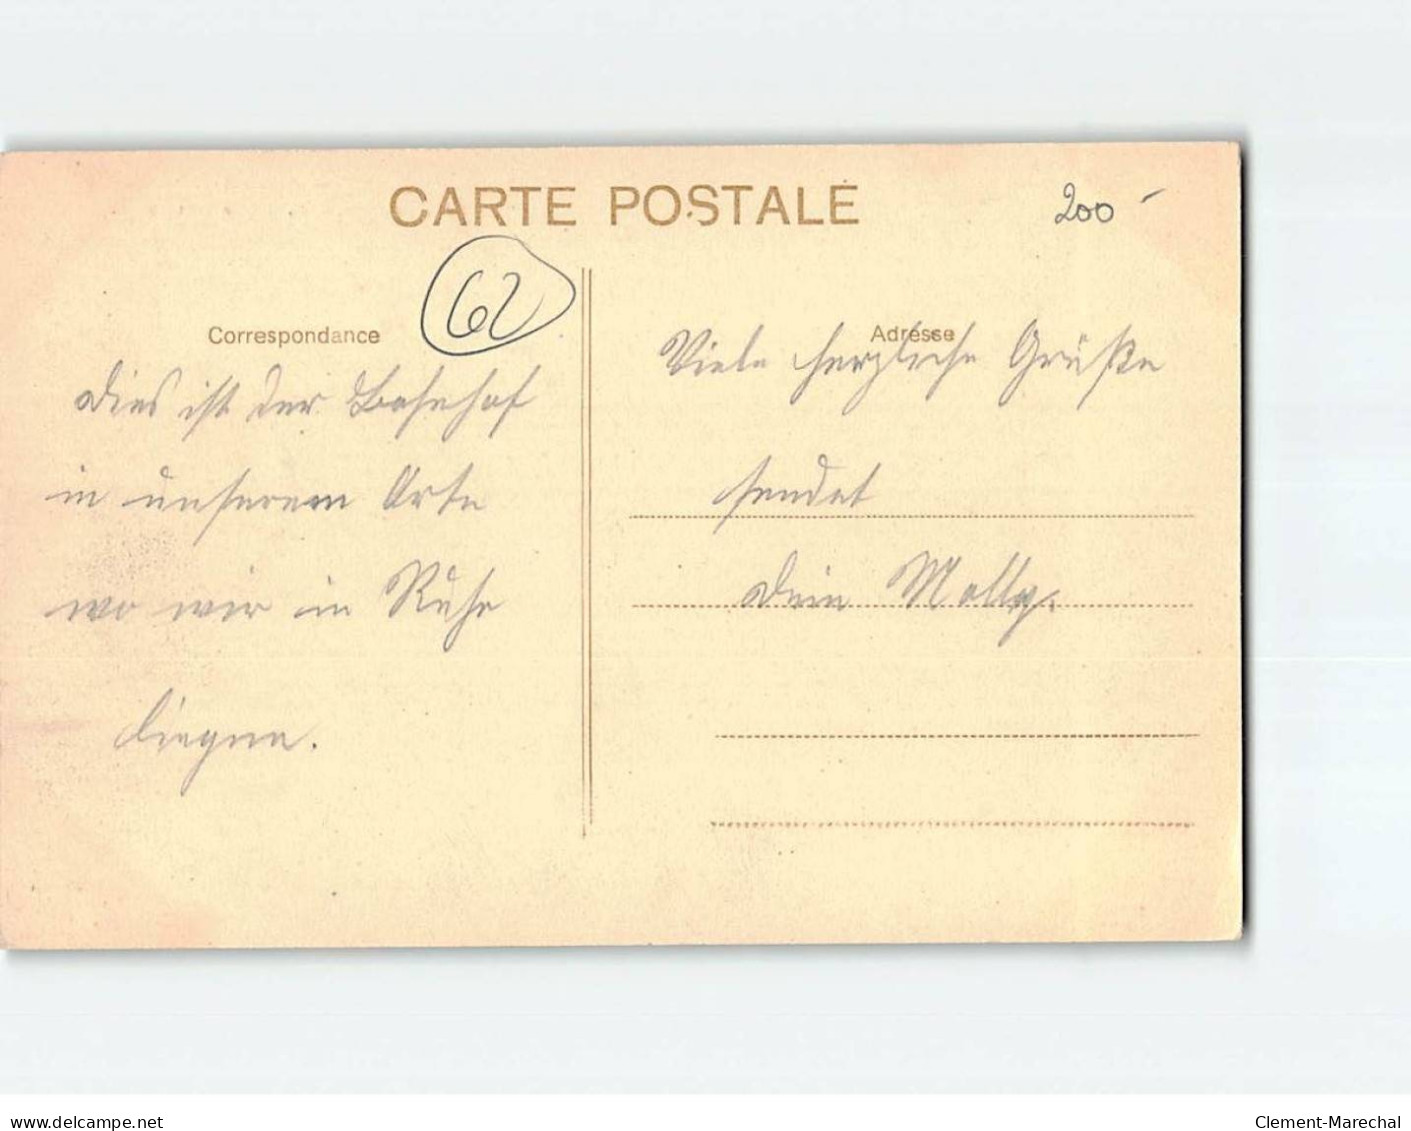 CARTE POSTALE
200 -
62
Correspondance
Dies ist der Bahnhof
in unserem Orte
wo wir in Ruhe
liegen.
Adresse
Viele herzliche Grüße
sendet
Dein Molly.
delcampe.net
Clement-Marechal